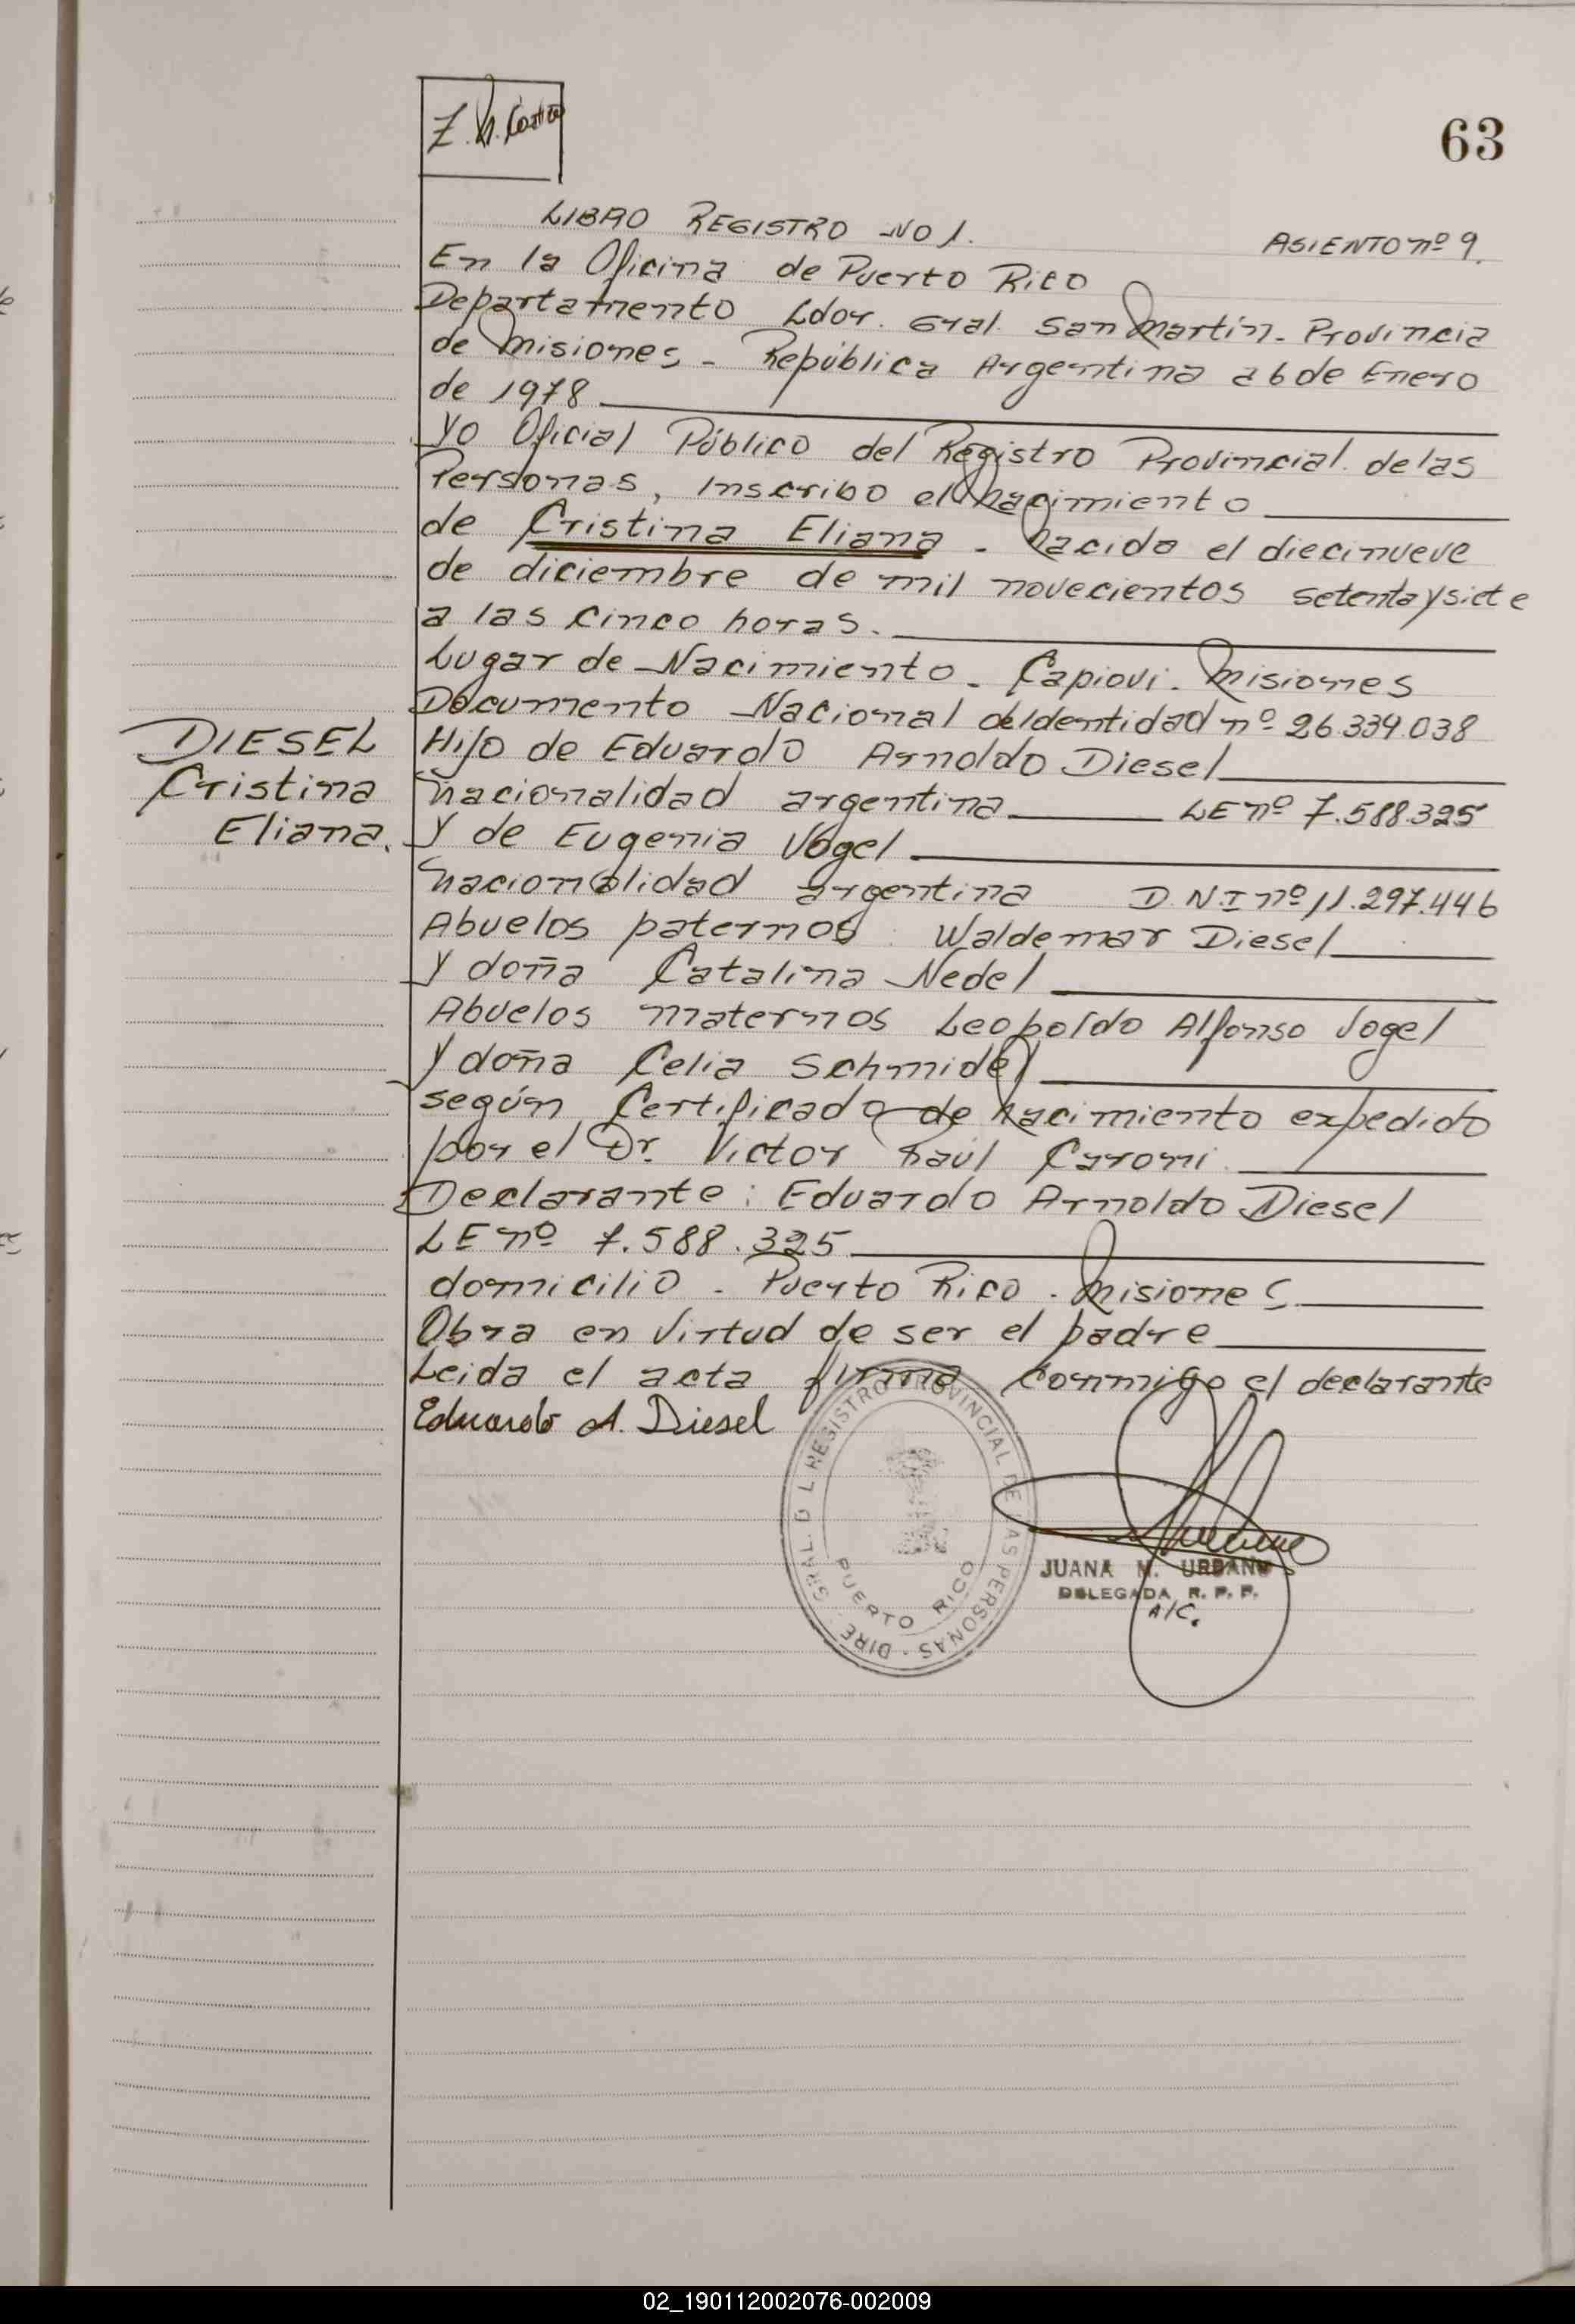 63
LIBRO REGISTRO No 1.
ASIENTO nº 9.
En la Oficina de Puerto Rico
Departamento Ldor. Gral. San Martín - Provincia
de Misiones - República Argentina a 6 de Enero
de 1978
Yo Oficial Público del Registro Provincial de las
Personas, Inscribo el Nacimiento
de Cristina Eliana - Nacido el diecinueve
de diciembre de mil novecientos setenta y siete
a las cinco horas.
Lugar de Nacimiento - Capiovi - Misiones
Documento Nacional de Identidad nº 26.339.038
DIESEL
Cristina
Eliana.
Hijo de Eduardo Arnoldo Diesel
nacionalidad argentina LE nº 7.588.325
y de Eugenia Vogel
nacionalidad argentina D.N.I nº 11.297.446
Abuelos paternos: Waldemar Diesel
y doña Catalina Nedel
Abuelos maternos Leopoldo Alfonso Vogel
y doña Celia Schmidel
según Certificado de Nacimiento expedido
por el Dr. Victor Raúl Caroni.
Declarante: Eduardo Arnoldo Diesel
LE nº 7.588.325
domicilio - Puerto Rico - Misiones
Obra en Virtud de ser el padre
Leida el acta firma conmigo el declarante
Eduardo A. Diesel
REGISTRO PROVINCIAL DE LAS PERSONAS
PUERTO RICO
JUANA M. URBANO
DELEGADA R. P. P.
A/C.
02_190112002076-002009